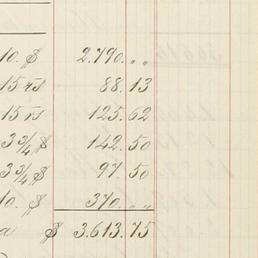 10. $ 2.790. „ „
15 rs 88.13
15 rs 125.62
3 3/4 $ 142.50
3 3/4 $ 97.50
10. $ 370. „ „
a $ 3.613.75